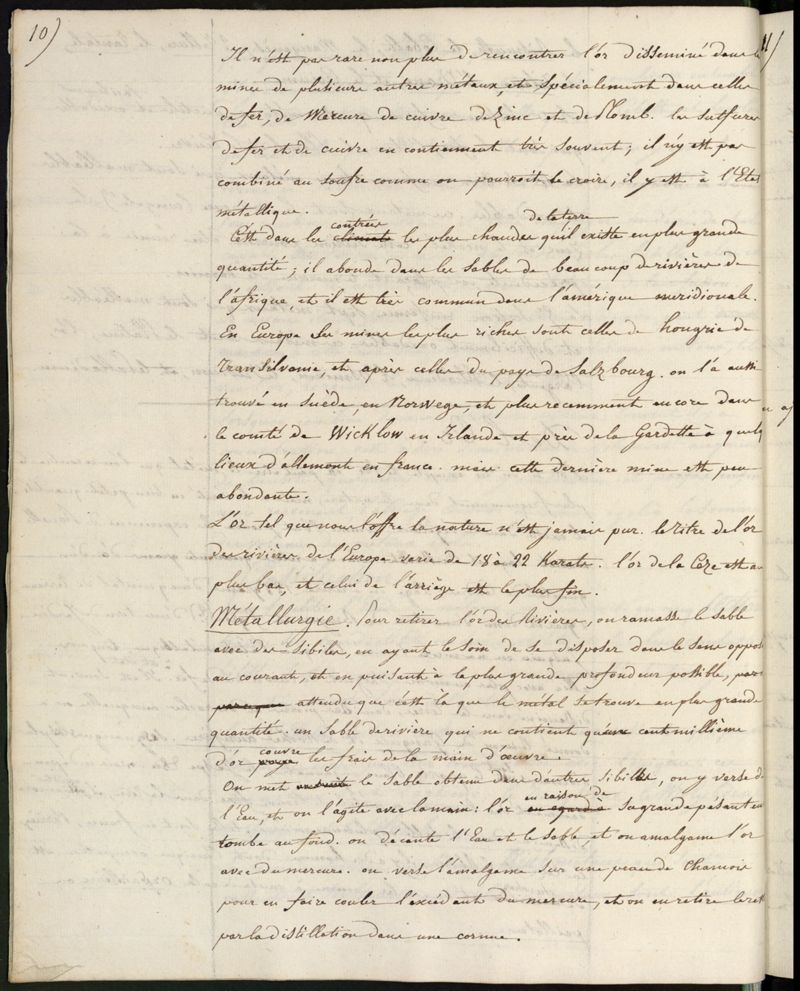 10)
Il n'est pas rare non plus de rencontrer l'or disseminé dans
mines de plusieurs autres métaux, et spécialement dans celles
de fer, de Mercure de cuivre de Zinc et de Plomb. les sulfures
de fer et de cuivre en contiennent très souvent ; il n'y est pas
combiné au soufre comme on pourroit le croire, il y est à l'Etat
métallique.
C'est dans les climats contrées les plus chaudes de la terre qu'il existe en plus grande
quantité ; il abonde dans les sables de beaucoup de rivières de
l'afrique, et il est très commun dans l'amérique meridionale.
En Europe ses mines les plus riches sont celles de hongrie de
Transilvanie, et après celles du pays de Salzbourg. on l'a aussi
trouvé en suède, en Norwege, et plus recemment encore dans
le comté de Wicklow en Irlande et près de la Gardette à quelq
lieux d'allemont en france. mais cette dernière mine est peu
abondante.
L'or tel que nous l'offre la nature n'est jamais pur. le titre de l'or
des rivières de l'Europe varie de 18 à 22 Karats. l'or de la Cèze est au
plus bas, et celui de l'arriège est le plus fin.
Métallurgie. Pour retirer l'or des Rivières, on ramasse le sable
avec des sibiles, en ayant le soin de se disposer dans le sens opposé
au courants, et en puisant à la plus grande profondeur possible,
parceque attendu que c'est là que le métal se trouve en plus grande
quantité. un sable de rivière qui ne contient qu'un cent millième
d'or paye couvre les frais de la main d'œuvre.
On met ensuite le sable obtenu dans d'autres sibiles, on y verse de
l'Eau, et on l'agite avec la main : l'or eu egard à en raison de sa grande pésanteur
tombe au fond. on décante l'Eau et le sable, et on amalgame l'or
avec du mercure. on verse l'amalgame sur une peau de Chamois
pour en faire couler l'excédant du mercure, et on en retire le reste
par la distillation dans une cornue.
11)